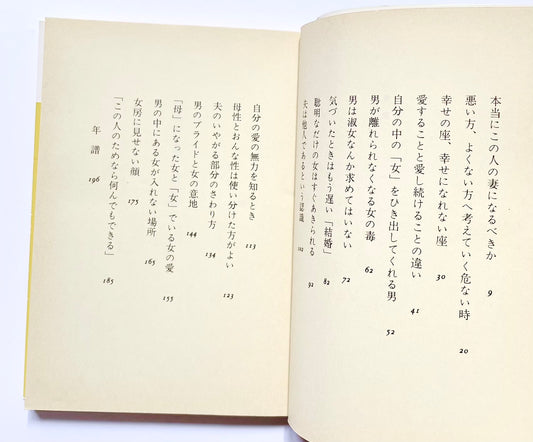 本当にこの人の妻になるべきか 9
悪い方、よくない方へ考えていく危ない時 20
幸せの座、幸せになれない座 30
愛することと愛し続けることの違い 41
自分の中の「女」をひき出してくれる男 52
男が離れられなくなる女の毒 62
男は淑女なんか求めてはいない 72
気づいたときはもう遅い「結婚」 82
聡明なだけの女はすぐあきられる 92
夫は他人であるという認識 102
自分の愛の無力を知るとき 113
母性とおんな性は使い分けた方がよい 123
夫のいやがる部分のさわり方 134
男のプライドと女の意地 144
「母」になった女と「女」でいる女の愛 155
男の中にある女が入れない場所 165
女房に見せない顔 175
「この人のためなら何んでもできる」 185
年譜 196